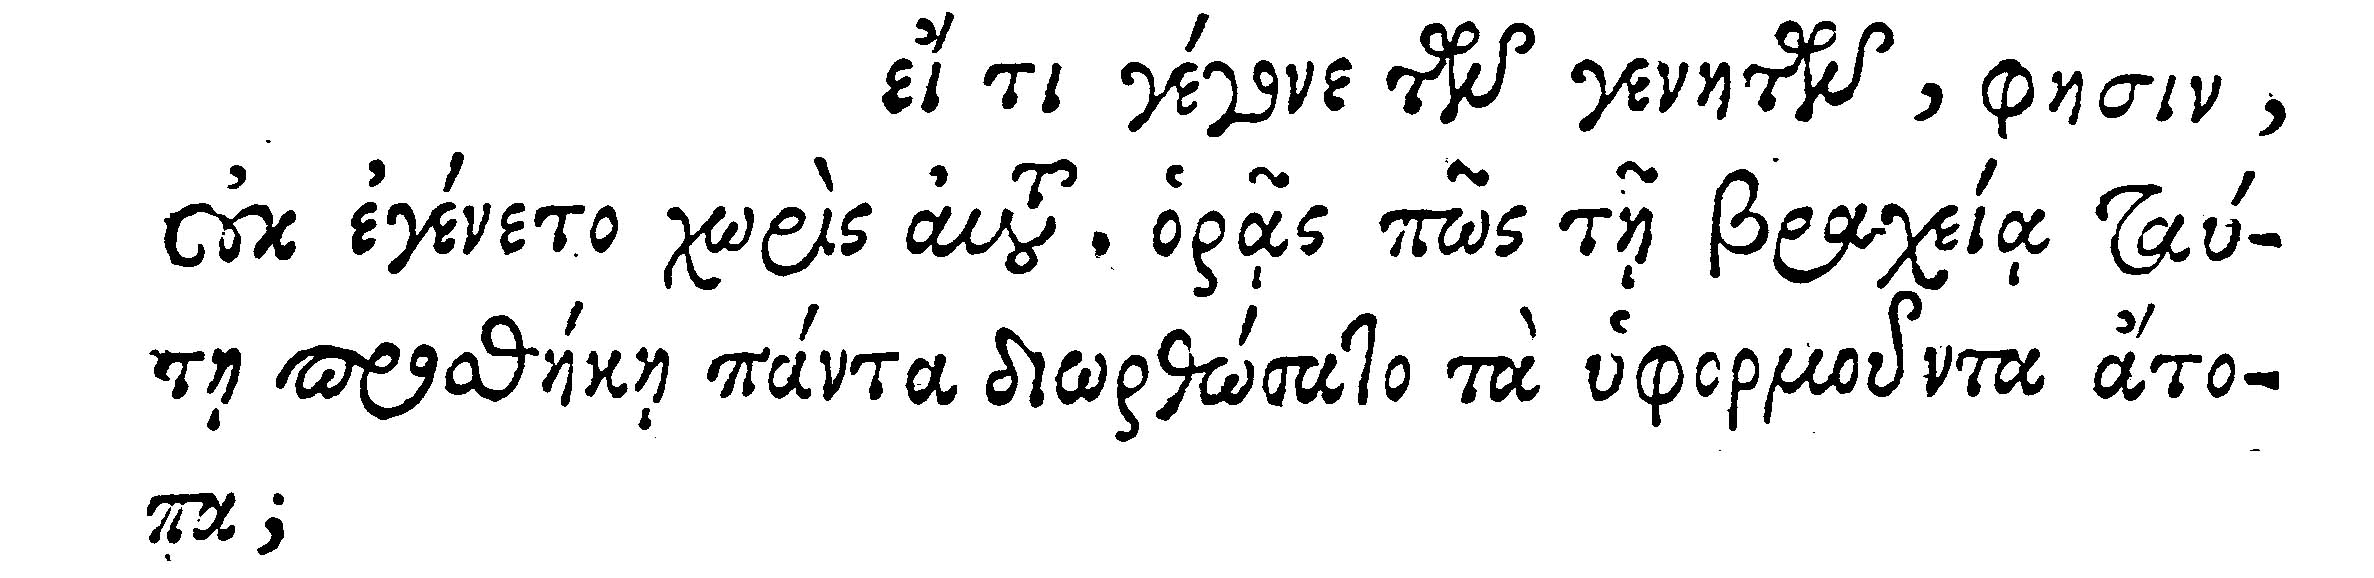 εἴ τι γέγονε τῶν γενητῶν, φησιν,
οὐκ ἐγένετο χωρὶς ἀυτοῦ. ὁρᾷς πῶς τῇ βραχείᾳ ταύ-
τῃ προσθήκῃ πάντα διωρθώσατο τὰ ὑφορμοῦντα ἄτο-
πα;